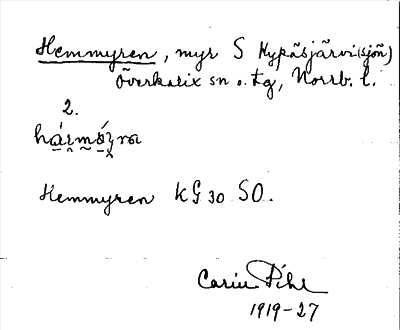 Hemmyren, myr S Hypäsjärvi (sjön)
Överkalix sn o. tg, Norrb. l.
2.
Hemmyren KG 30 SO.
Carin Pihl
1919-27